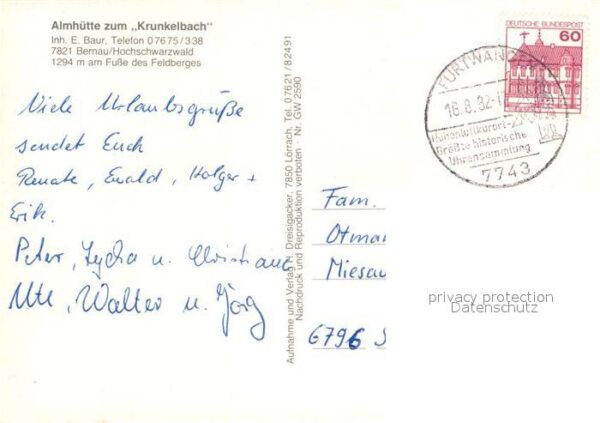 Almhütte zum „Krunkelbach"
Inh. E. Baur, Telefon 0 76 75 / 3 38
7821 Bernau/Hochschwarzwald
1294 m am Fuße des Feldberges
Viele Urlaubsgrüße
sendet Euch
Renate, Ewald, Holger +
Erik.
Peter, Lydia u. Christiane
Ute, Walter u. Jörg
Aufnahme und Verlag H. Dreisigacker, 7850 Lörrach, Tel. 07621/82491
Nachdruck und Reproduktion verboten · Nr. GW 2590
DEUTSCHE BUNDESPOST
60
FURTWANGEN
18.8.82
Höhenluftkurort
Größte historische
Uhrensammlung
7743
Fam.
Otmar
Miesau
6796 S
privacy protection
Datenschutz